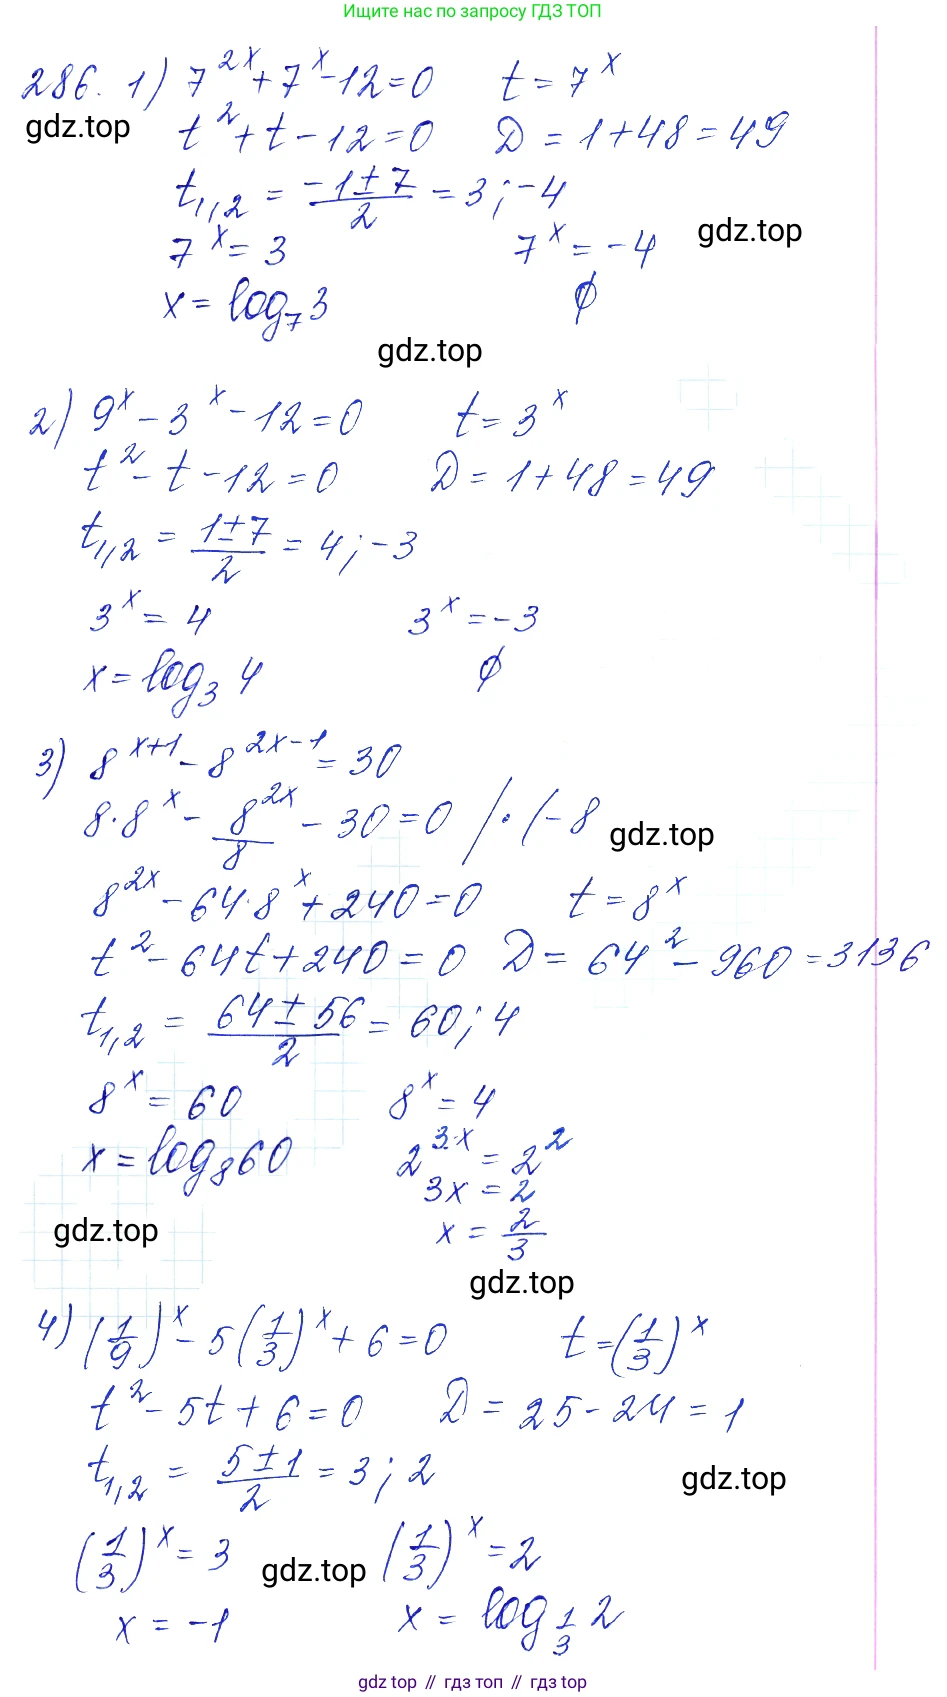 Ищите нас по запросу ГДЗ ТОП
286. 1) 7^{2x} + 7^x - 12 = 0   t = 7^x
gdz.top
t^2 + t - 12 = 0   D = 1 + 48 = 49
t_{1,2} = \frac{-1 ± 7}{2} = 3; -4
gdz.top
7^x = 3   7^x = -4
x = log_7 3   ∅
gdz.top
2) 9^x - 3^x - 12 = 0   t = 3^x
t^2 - t - 12 = 0   D = 1 + 48 = 49
t_{1,2} = \frac{1 ± 7}{2} = 4; -3
3^x = 4   3^x = -3
x = log_3 4   ∅
3) 8^{x+1} - 8^{2x-1} = 30
8·8^x - \frac{8^{2x}}{8} - 30 = 0 / · (-8
gdz.top
8^{2x} - 64·8^x + 240 = 0   t = 8^x
t^2 - 64t + 240 = 0   D = 64^2 - 960 = 3136
t_{1,2} = \frac{64 ± 56}{2} = 60; 4
8^x = 60   8^x = 4
x = log_8 60   2^{3·x} = 2^2
3x = 2
gdz.top   x = \frac{2}{3}
gdz.top
4) (\frac{1}{9})^x - 5(\frac{1}{3})^x + 6 = 0   t = (\frac{1}{3})^x
t^2 - 5t + 6 = 0   D = 25 - 24 = 1
t_{1,2} = \frac{5 ± 1}{2} = 3; 2
gdz.top
(\frac{1}{3})^x = 3   gdz.top   (\frac{1}{3})^x = 2
x = -1   x = log_{\frac{1}{3}} 2
gdz.top // гдз топ // гдз.топ